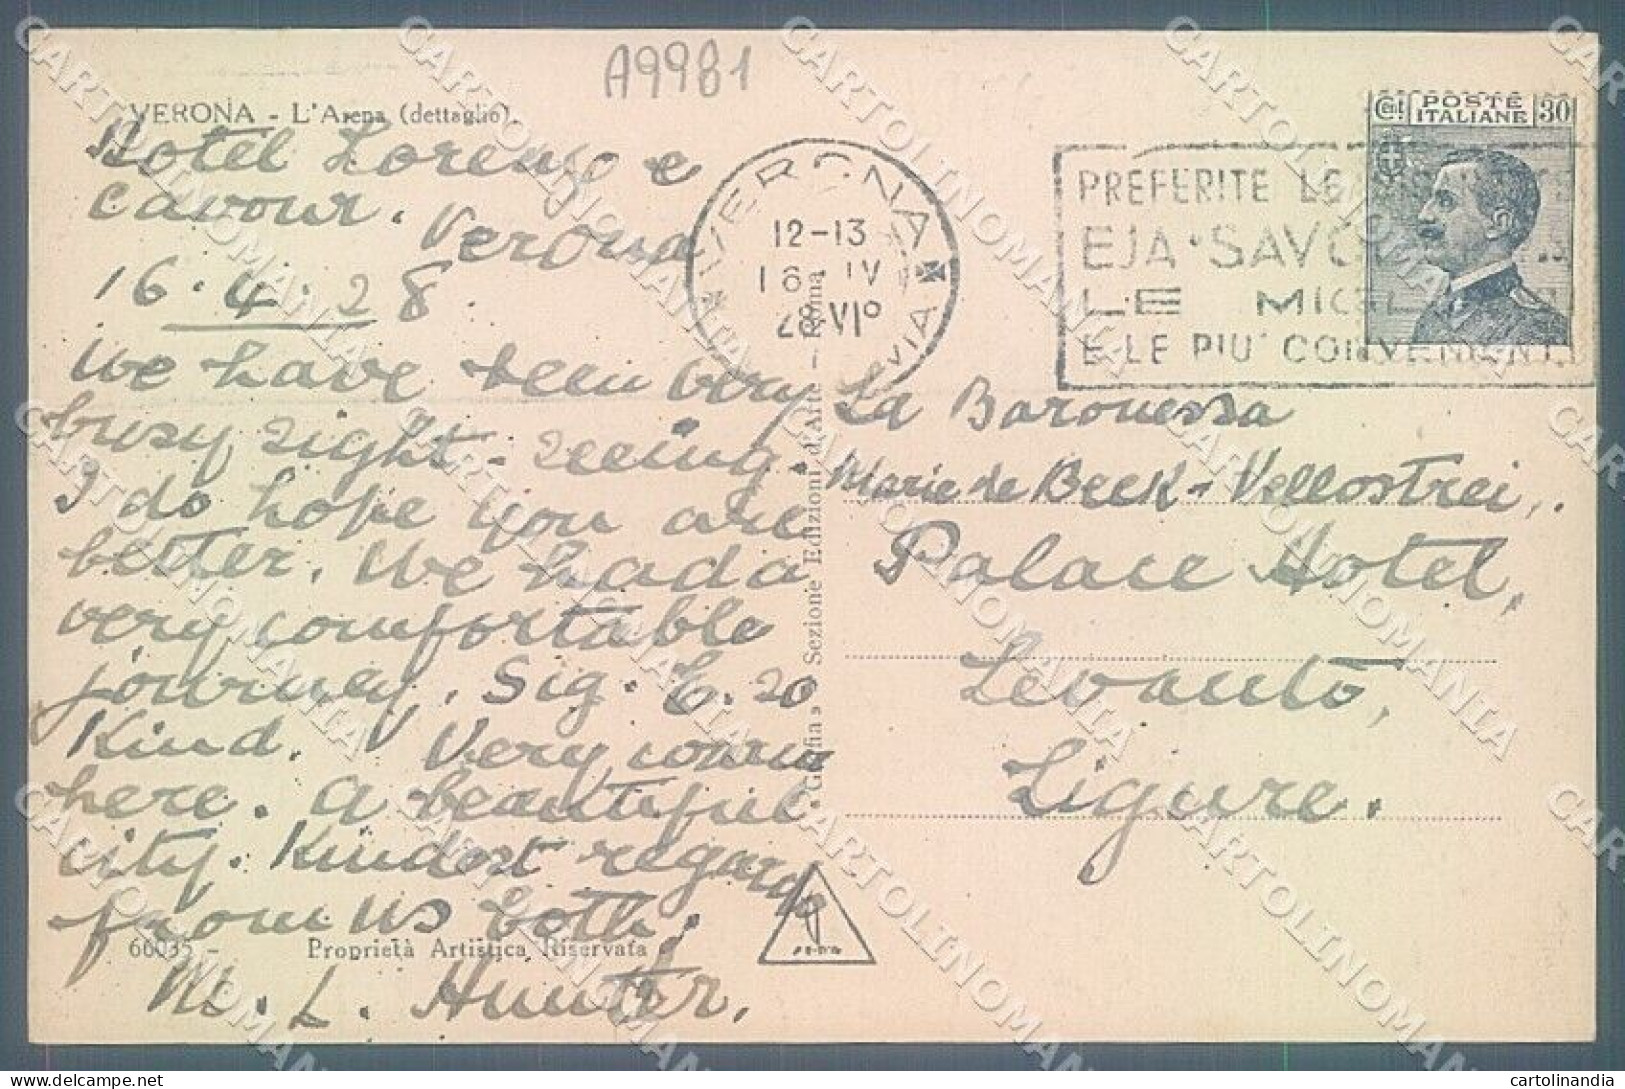 A9981
VERONA - L'Arena (dettaglio).
Hotel Lorenzo e
Cavour. Verona
16.4.28
We have been very
busy sight-seeing.
I do hope you are
better. We had a
very comfortable
journey. Sig. E. so
Kind. Very warm
here. A beautiful
city. Kindest regards
from us both.
M. L. Hunter.
60035 - Proprietà Artistica Riservata
"Grafia" Sezione Edizioni d'Arte - Roma
VERONA
12-13
16 IV
28 VIº
Cent POSTE ITALIANE 30
PREFERITE LE
EJA
LE
E LE PIU' CONVENIENTI
La Baronessa
Marie de Beek-Vellostrei,
Palace Hotel,
Levanto,
Ligure.
CARTOLINOMANIA
cartolinandia